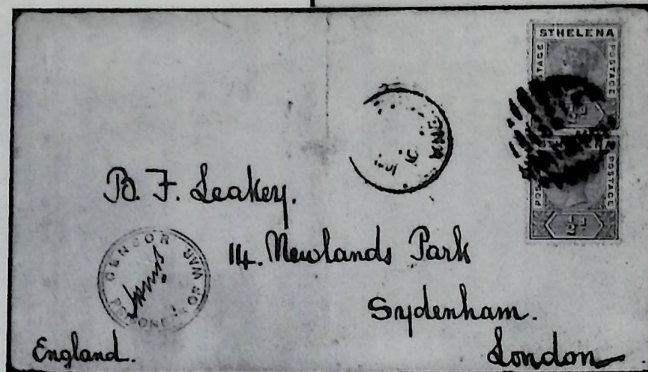 ST HELENA
POSTAGE
POSTAGE
½d
POSTAGE
½d
B. F. Leakey.
14. Newlands Park
Sydenham.
London
England.
CENSOR
PRISONER OF WAR